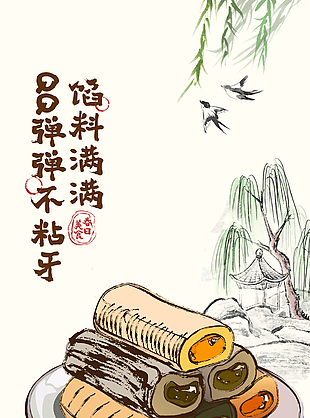 馅料满满
QQ弹弹不粘牙
春日
美食